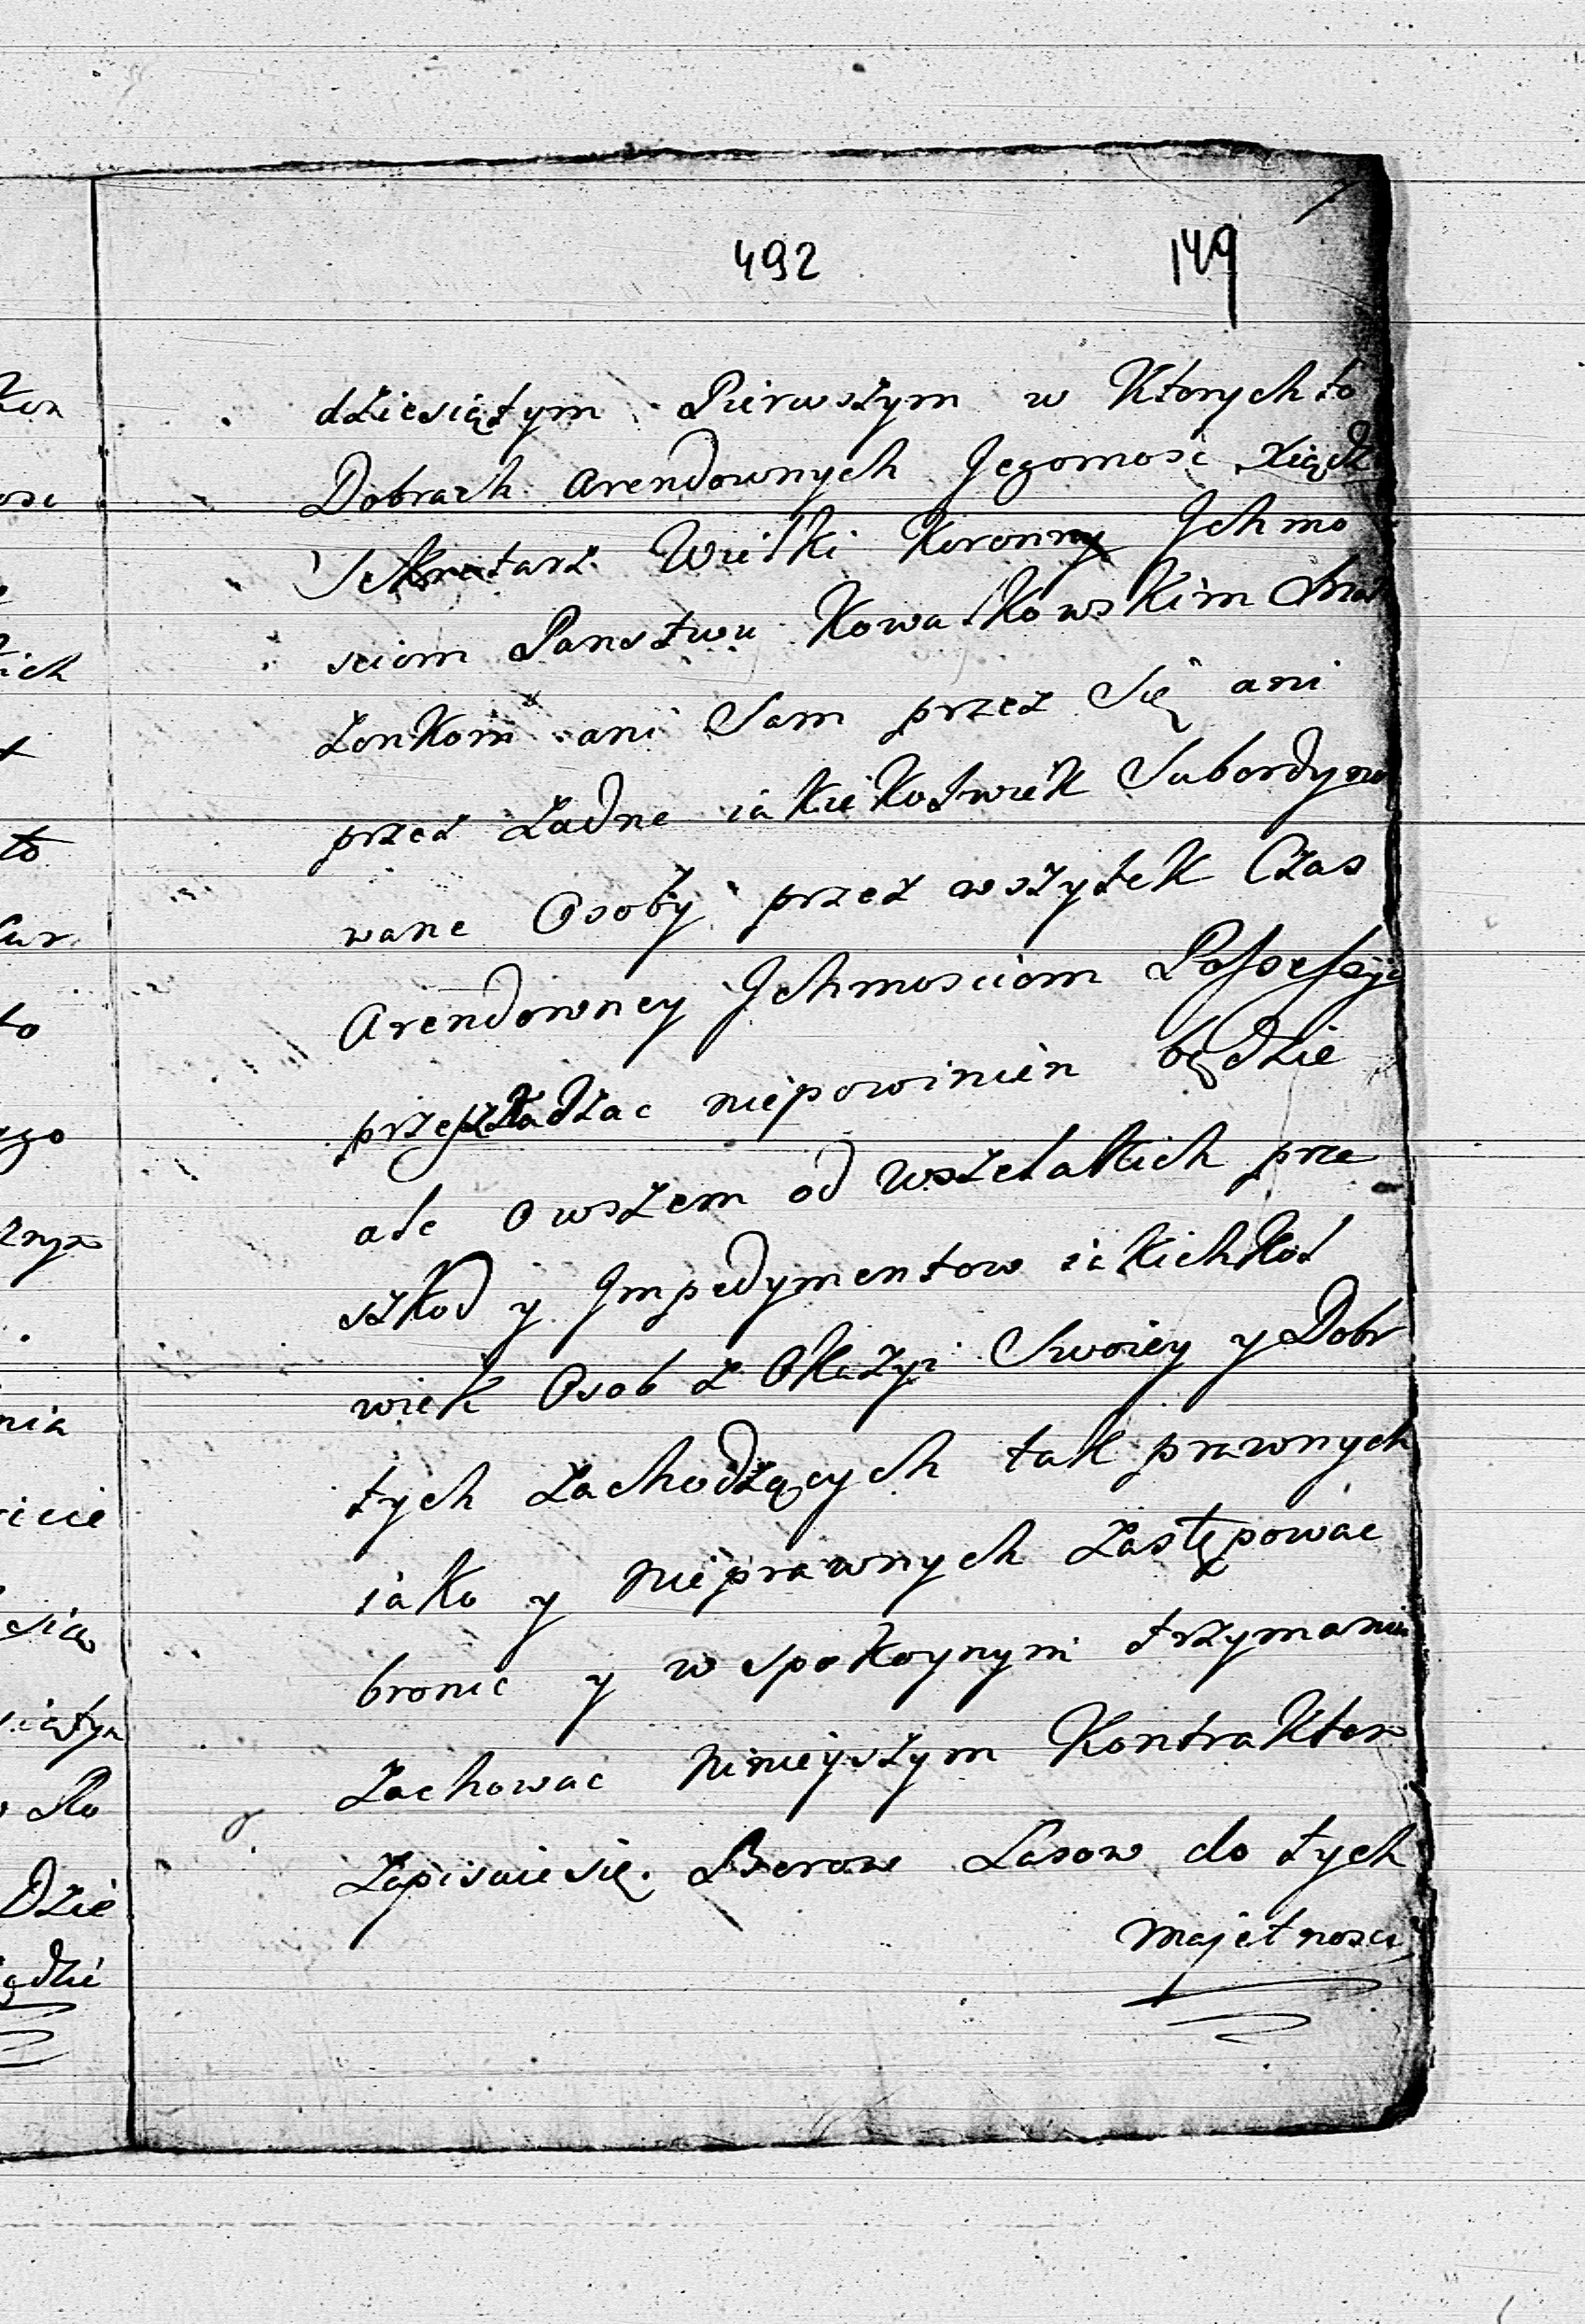 492 149
dziesiątym Pierwszym w Ktorych to
Dobrach arendownych Jegomosc Xiądz
Sekretarz Wielki Koronny Jchmo
sciom Panstwu Kowalkowskim Mał
zonkom ani Sam przez Się ani
przez zadne iakiekolwiek Subordyno
wane Osoby przez wszytek Czas
Arendowney Jchmosciom Possessyi
przeszkadzac niepowinien będzie
ale owszem od wszelakich prze
szkod y Jmpedymentow iakichkol
wiek Osob z Okazyi Swoiey y Dobr
tych zachodzących tak prawnych
iako y nieprawnych zastępowac
bronic y w spokoynym trzymaniu
zachowac ninieyszym Kontraktem
zapisuie się. Borow Lasow do tych
majetnosci